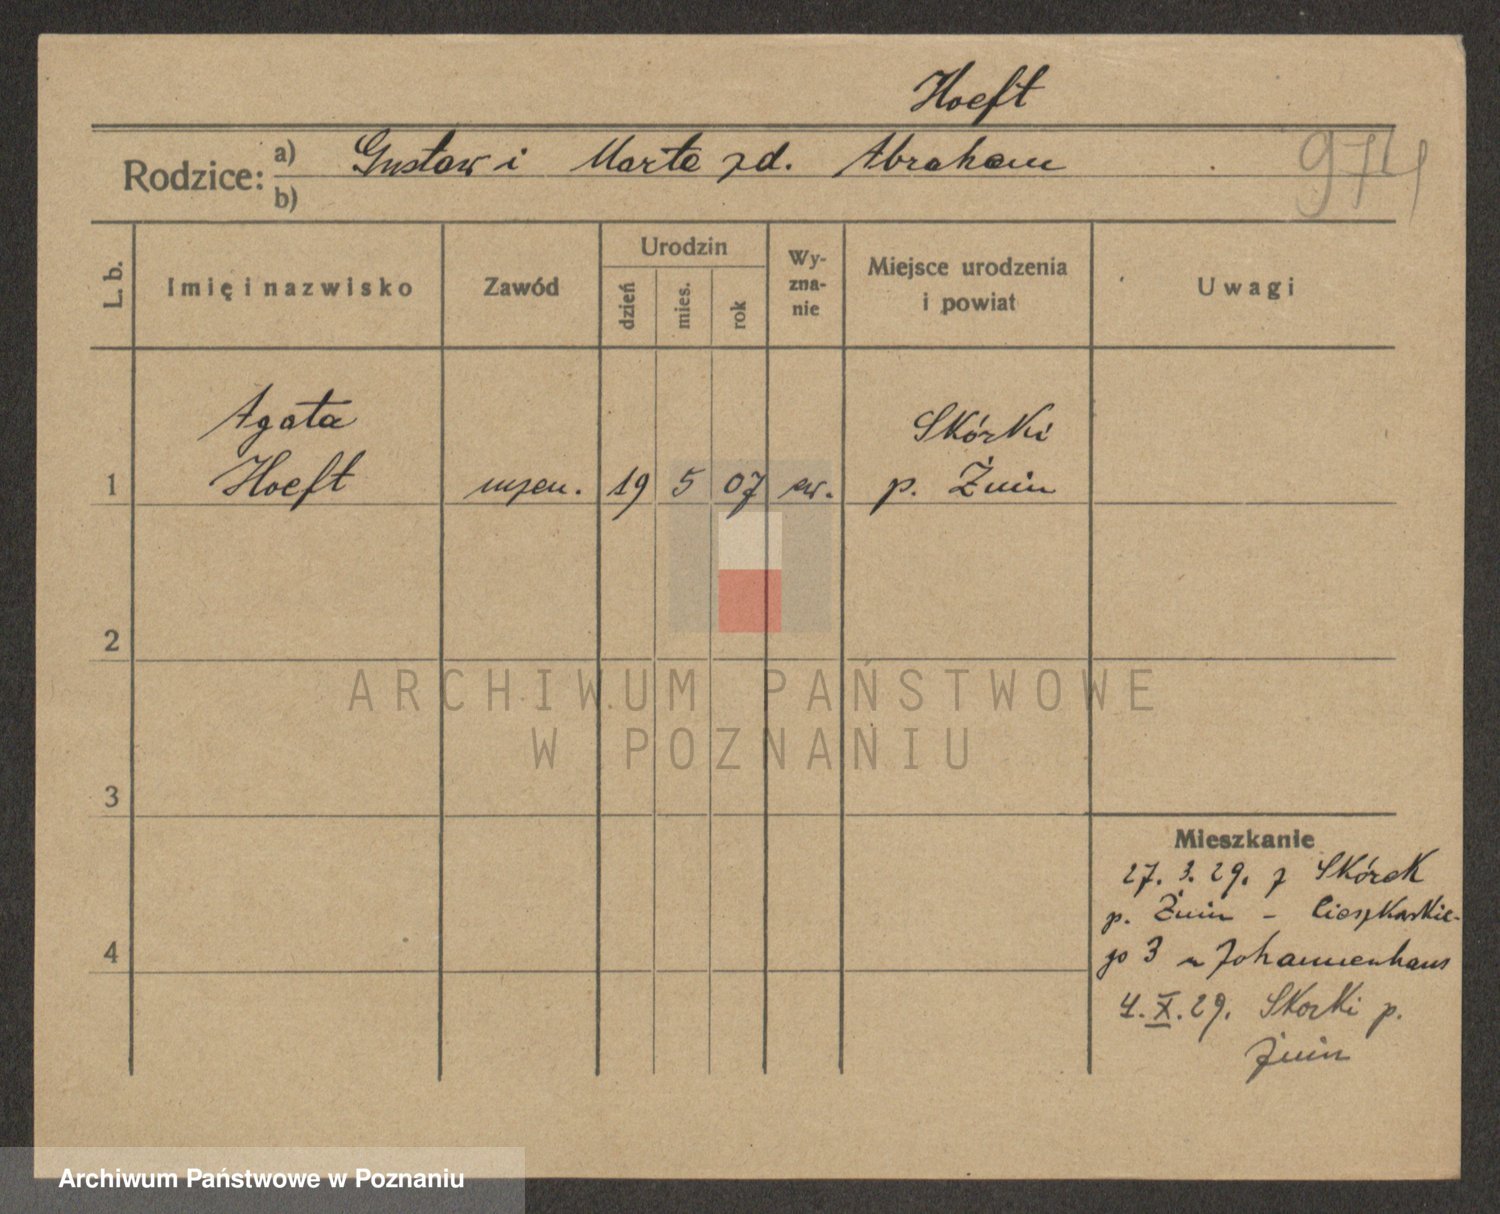 Hoeft
Rodzice: a) Gustaw i Marta zd. Abraham
b)
974
L. b.
Imię i nazwisko
Zawód
Urodzin
dzień
mies.
rok
Wy-
zna-
nie
Miejsce urodzenia
i powiat
Uwagi
Agata
Hoeft
1
uczen.
19
5
07
ew.
Skórki
p. Żnin
2
3
4
Mieszkanie
27. 3. 29. z Skórek
p. Żnin - Cieszkowskie-
go 3 u Johannenhaus
4. X. 29. Skorki p.
Żnin
ARCHIWUM PAŃSTWOWE
W POZNANIU
Archiwum Państwowe w Poznaniu